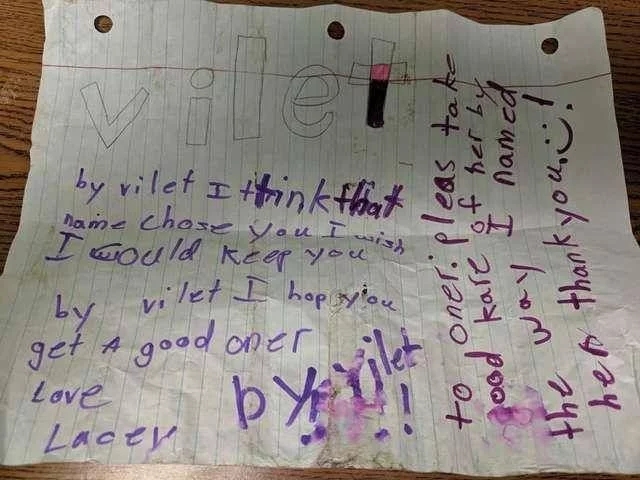 vilet
by vilet I think that
name chose you I wish
I would keep you
by vilet I hop you
get A good oner
Love
Lacey
by! vilet!!
to oner: pleas take
good kare of her by
the way I named
her thank you. :)!